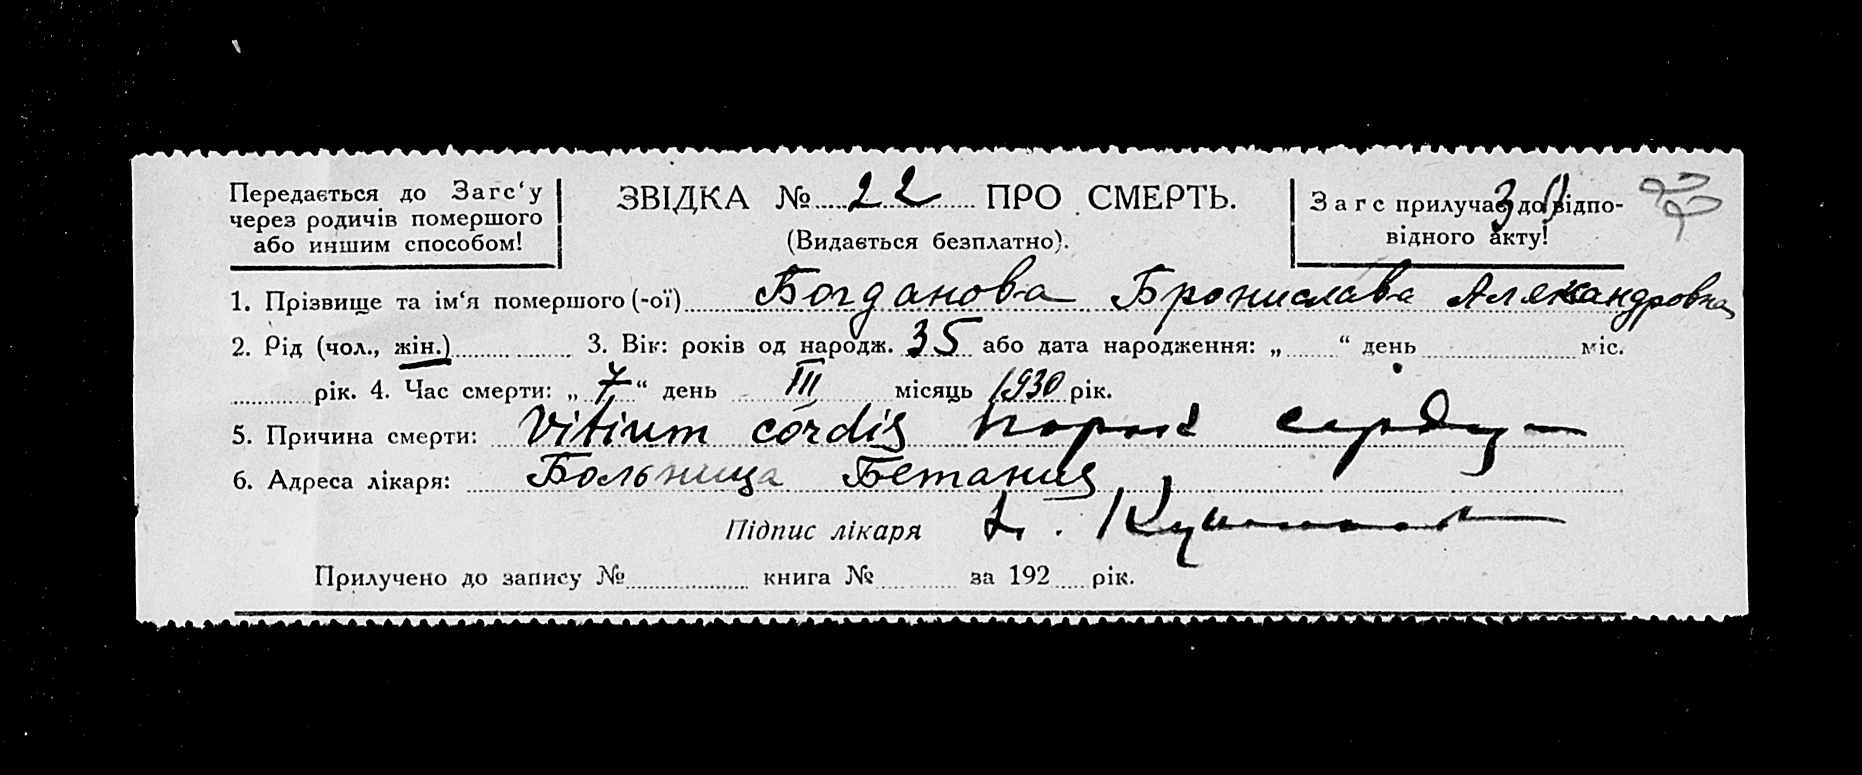 Передається до Загс‘у
через родичів помершого
або иншим способом!
ЗВІДКА № 22 ПРО СМЕРТЬ.
(Видається безплатно).
Загс прилучає до відпо-
відного акту!
1. Прізвище та ім‘я помершого (-ої) Богданова Бронислава Александровна
2. Рід (чол., жін.) 3. Вік: років од народж. 35 або дата народження: „ “ день міс.
рік. 4. Час смерти: „ 7 “ день III місяць 1930 рік.
5. Причина смерти: Vitium cordis порок сердца
6. Адреса лікаря: Больница Бетания
Підпис лікаря
Прилучено до запису № книга № за 192 рік.